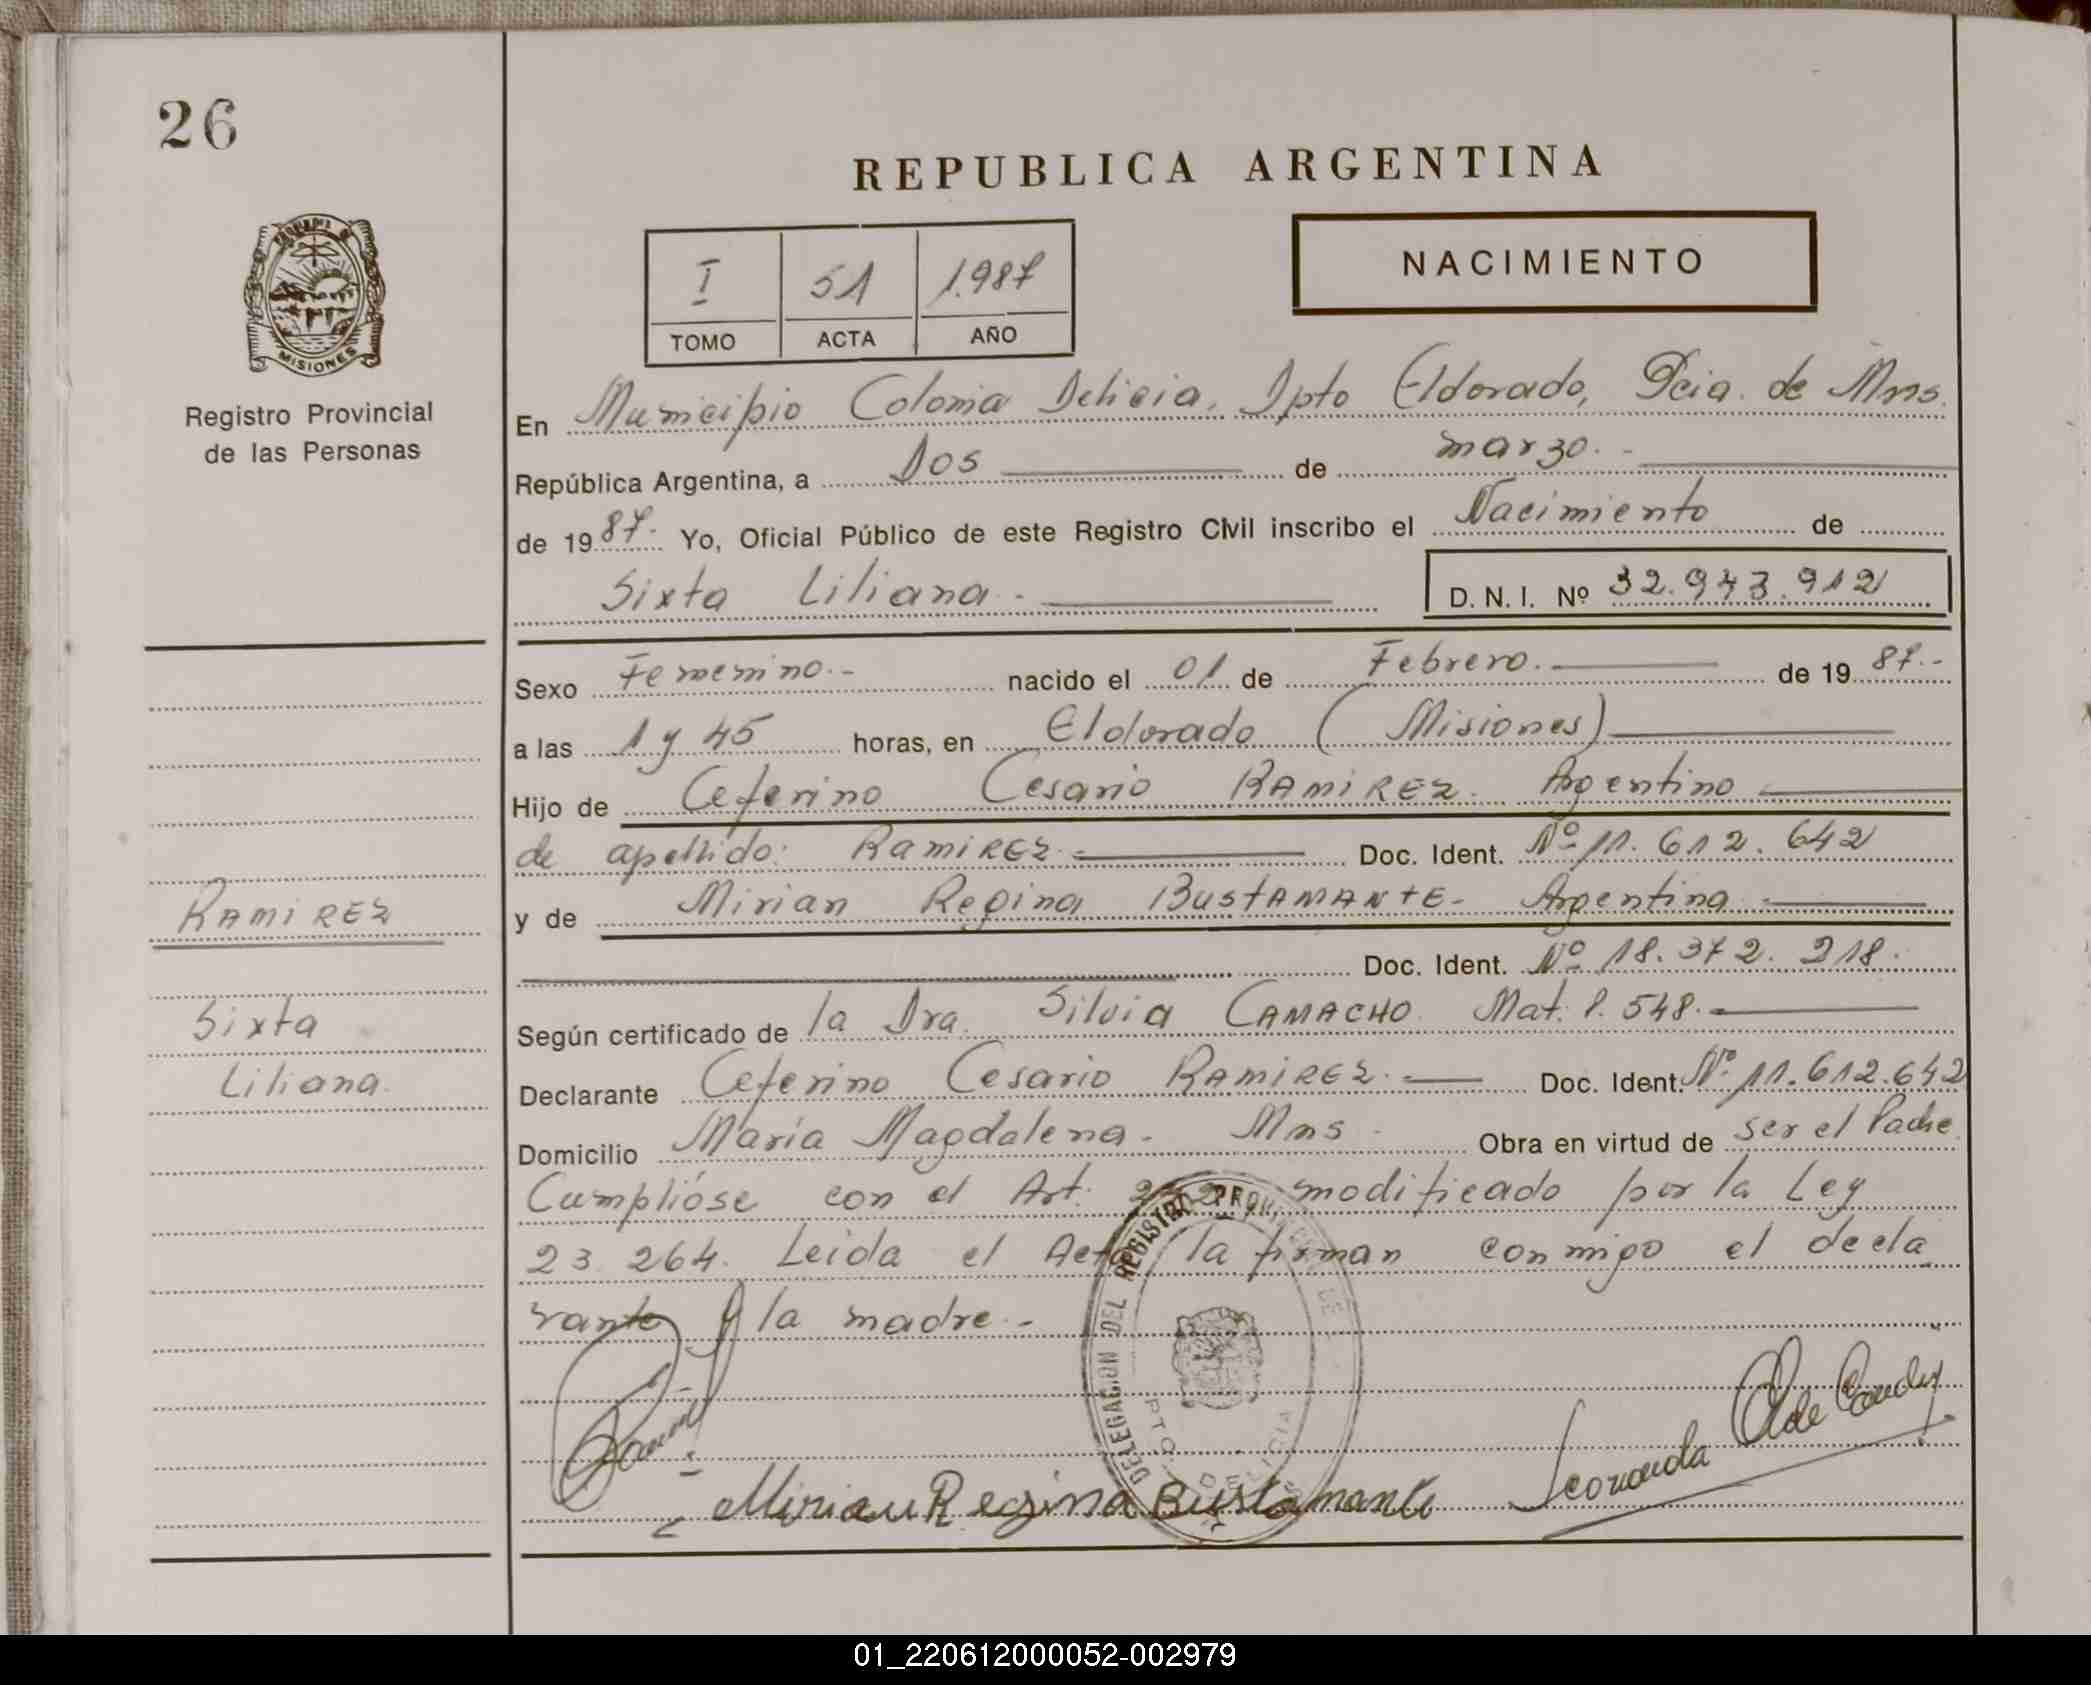 26
REPUBLICA ARGENTINA
MISIONES
Registro Provincial
de las Personas
I 51 1.987
TOMO ACTA AÑO
NACIMIENTO
En Municipio Colonia Delicia, Dpto Eldorado, Pcia. de Mnes.
República Argentina, a Dos de marzo.-
de 1987.- Yo, Oficial Público de este Registro Civil inscribo el Nacimiento de
Sixta Liliana.- D. N. I. Nº 32.943.912
Sexo Femenino.- nacido el 01 de Febrero. de 19 87.-
a las 1 y 45 horas, en Eldorado (Misiones)
Hijo de Ceferino Cesario RAMIREZ. Argentino
de apellido: RAMIREZ Doc. Ident. Nº 11.612.642
y de Mirian Regina BUSTAMANTE- Argentina
Doc. Ident. Nº 18.372.218.
Según certificado de la Dra. Silvia CAMACHO. Mat. P. 548.-
Declarante Ceferino Cesario RAMIREZ.- Doc. Ident. Nº 11.612.642
Domicilio María Magdalena- Mnes- Obra en virtud de ser el Padre
Cumplióse con el Art. modificado por la Ley
23.264. Leida el Acta la firman conmigo el decla
rante y la madre.-
RAMIREZ
Sixta
Liliana.
DELEGACION DEL REGISTRO
PTO. DELICIA
Mirian Regina Bustamante
01_220612000052-002979